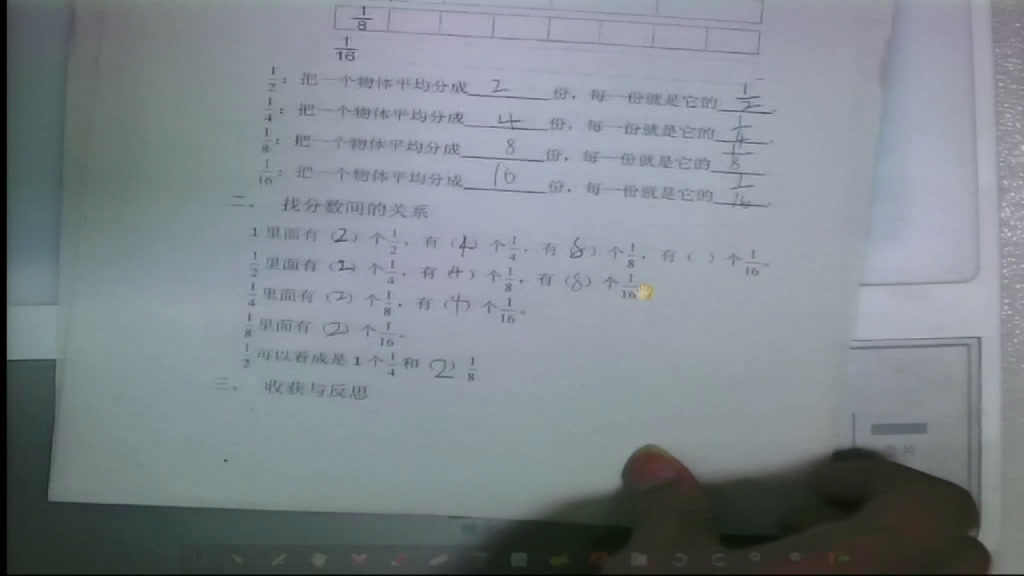 1/8
1/16
1/2:把一个物体平均分成 2 份,每一份就是它的 1/2 .
1/4:把一个物体平均分成 4 份,每一份就是它的 1/4 .
1/8:把一个物体平均分成 8 份,每一份就是它的 1/8 .
1/16:把一个物体平均分成 16 份,每一份就是它的 1/16 .
二、 找分数间的关系
1里面有(2)个1/2,有(4)个1/4,有(8)个1/8,有( )个1/16。
1/2里面有(2)个1/4,有(4)个1/8,有(8)个1/16
1/4里面有(2)个1/8,有(4)个1/16。
1/8里面有(2)个1/16。
1/2可以看成是1个1/4和(2)1/8
三、 收获与反思